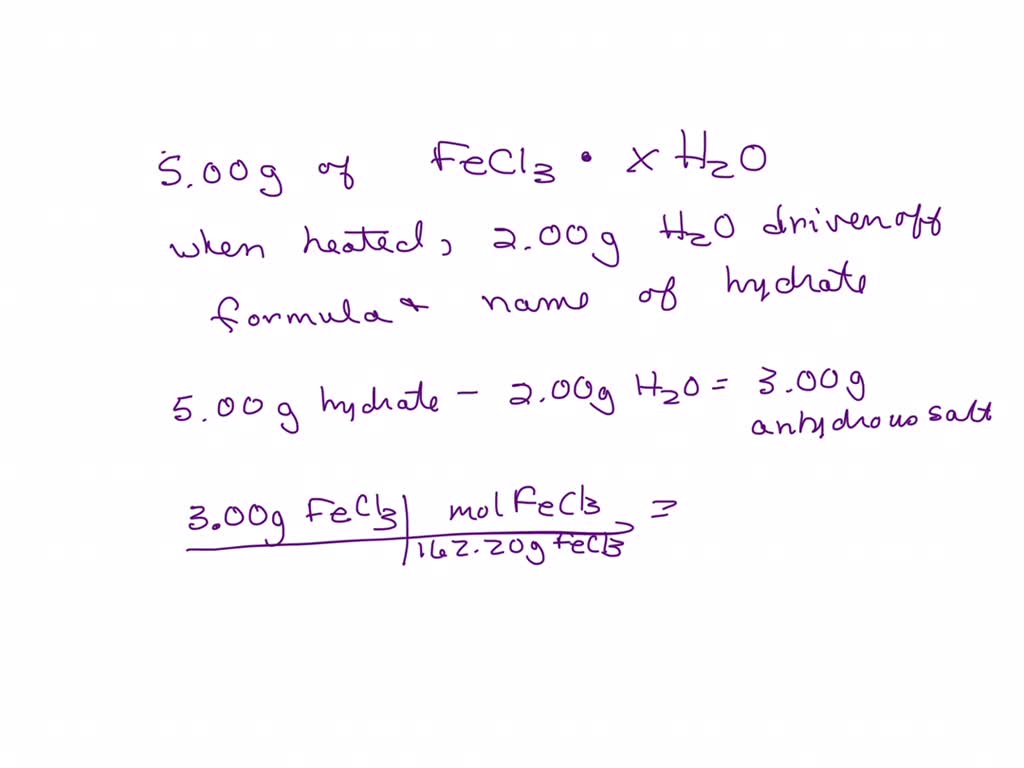 5.00g of FeCl₃ • x H₂O
when heated, 2.00g H₂O driven off
formula + name of hydrate
5.00g hydrate - 2.00g H₂O = 3.00g
anhydrous salt
3.00g FeCl₃ | mol FeCl₃ =
162.20g FeCl₃